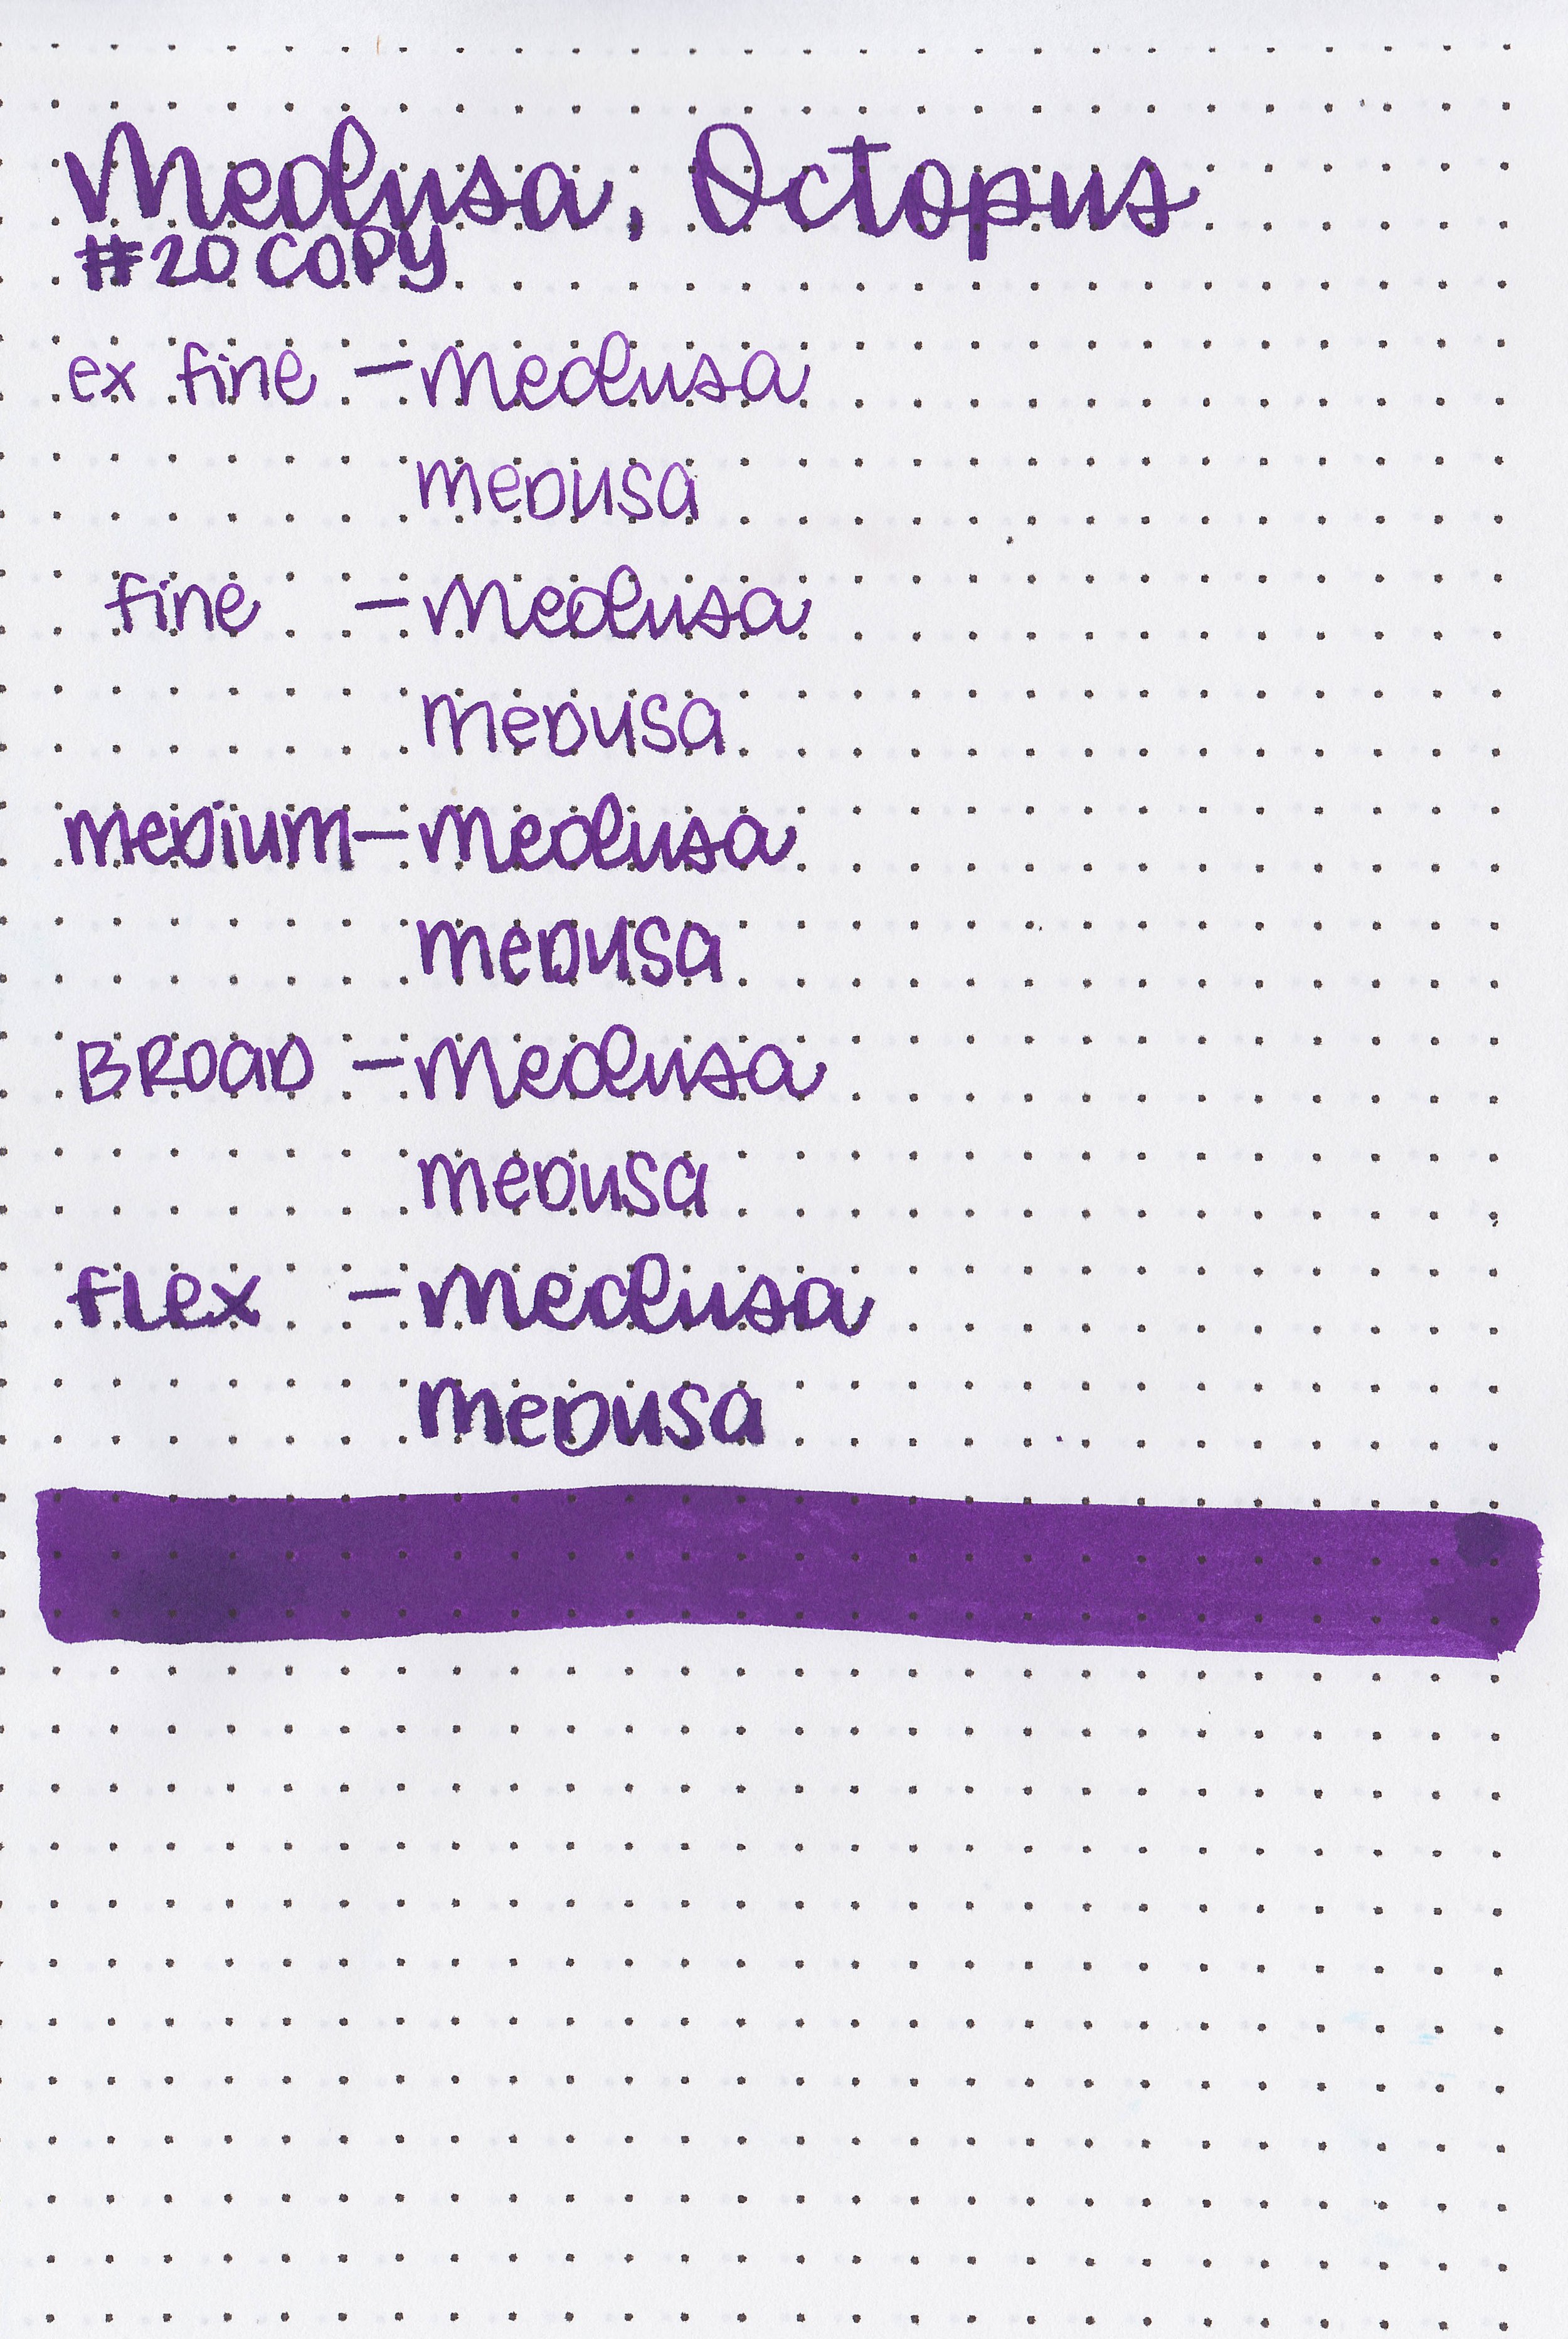 Medusa, Octopus
#20 COPY
ex fine - Medusa
meDusa
fine - Medusa
meDusa
meDium - Medusa
meDusa
BROaD - Medusa
meDusa
fLex - Medusa
meDusa